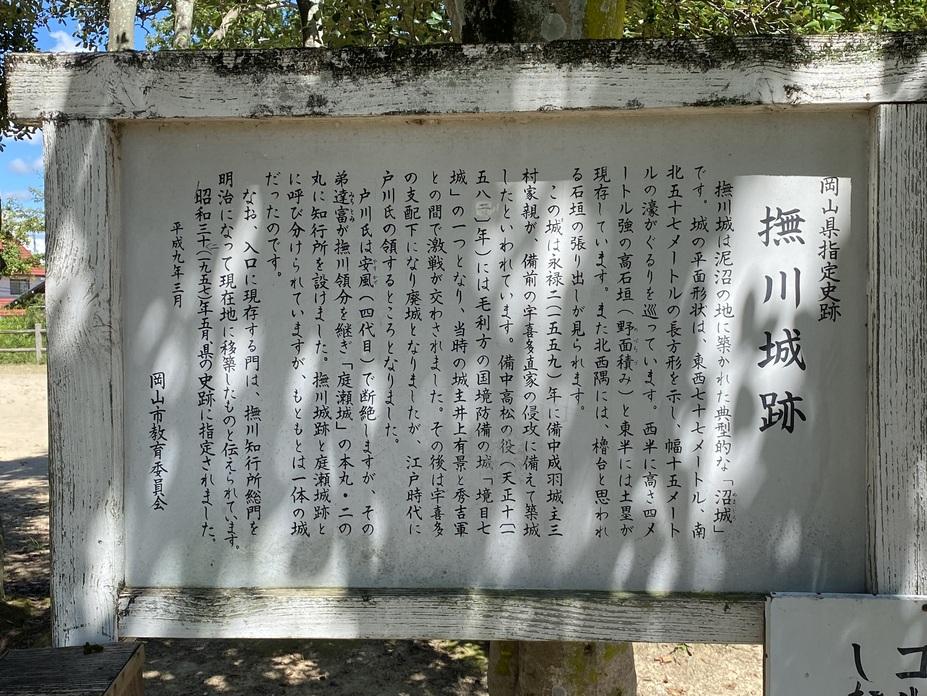 岡山県指定史跡
撫川城跡
撫川城は泥沼の地に築かれた典型的な「沼城」
です。城の平面形状は、東西七十七メートル、南
北五十七メートルの長方形を示し、幅十五メート
ルの濠がぐるりを巡っています。西半に高さ四メ
ートル強の高石垣（野面積み）と東半には土塁が
現存しています。また北西隅には、櫓台と思われ
る石垣の張り出しが見られます。
この城は永禄二（一五五九）年に備中成羽城主三
村家親が、備前の宇喜多直家の侵攻に備えて築城
したといわれています。備中高松の役（天正十〔一
五八二〕年）には毛利方の国境防備の城「境目七
城」の一つとなり、当時の城主井上有景と秀吉軍
との間で激戦が交わされました。その後は宇喜多
の支配下になり廃城となりましたが、江戸時代に
戸川氏の領するところとなりました。
戸川氏は安風（四代目）で断絶しますが、その
弟達富が撫川領分を継ぎ「庭瀬城」の本丸・二の
丸に知行所を設けました。撫川城跡と庭瀬城跡と
に呼び分けられていますが、もともとは一体の城
だったのです。
なお、入口に現存する門は、撫川知行所総門を
明治になって現在地に移築したものと伝えられています。
昭和三十二（一九五七）年五月、県の史跡に指定されました。
平成九年三月
岡山市教育委員会